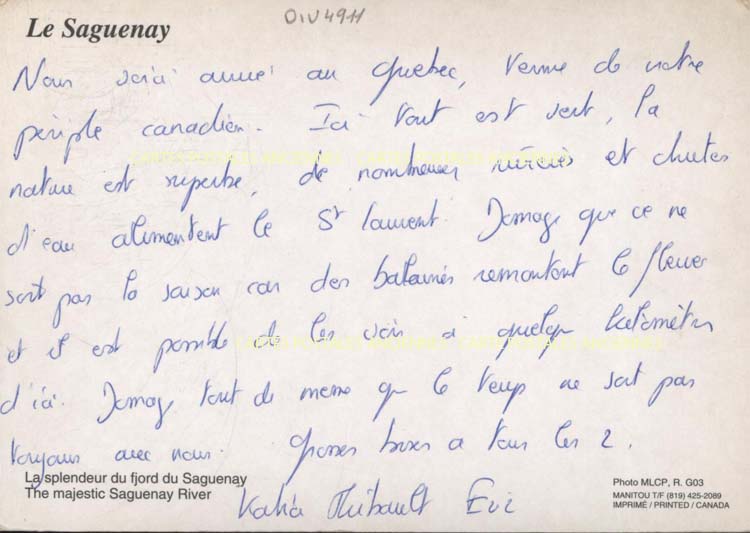 Le Saguenay
OIV4911
Nous voici arrivé au Québec, terme de notre
périple canadien. Ici tout est vert, la
nature est superbe, de nombreuses rivières et chutes
d'eau alimentent le St Laurent. Domage que ce ne
soit pas la saison car des baleines remontent le fleuve
et il est possible de les voir à quelque kilomètres
d'ici. Domage tout de meme que le temps ne soit pas
toujours avec nous. Grosses bises a tous les 2.
La splendeur du fjord du Saguenay
The majestic Saguenay River
Katia Thibault
Photo MLCP, R. G03
MANITOU T/F (819) 425-2089
IMPRIMÉ / PRINTED / CANADA